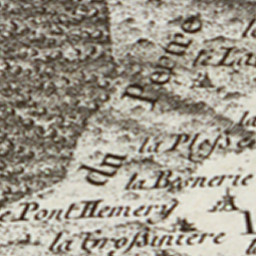 du Perche
la
te La
la
la Plesse
la Besnerie
le Pont Hemery
la Großiniere